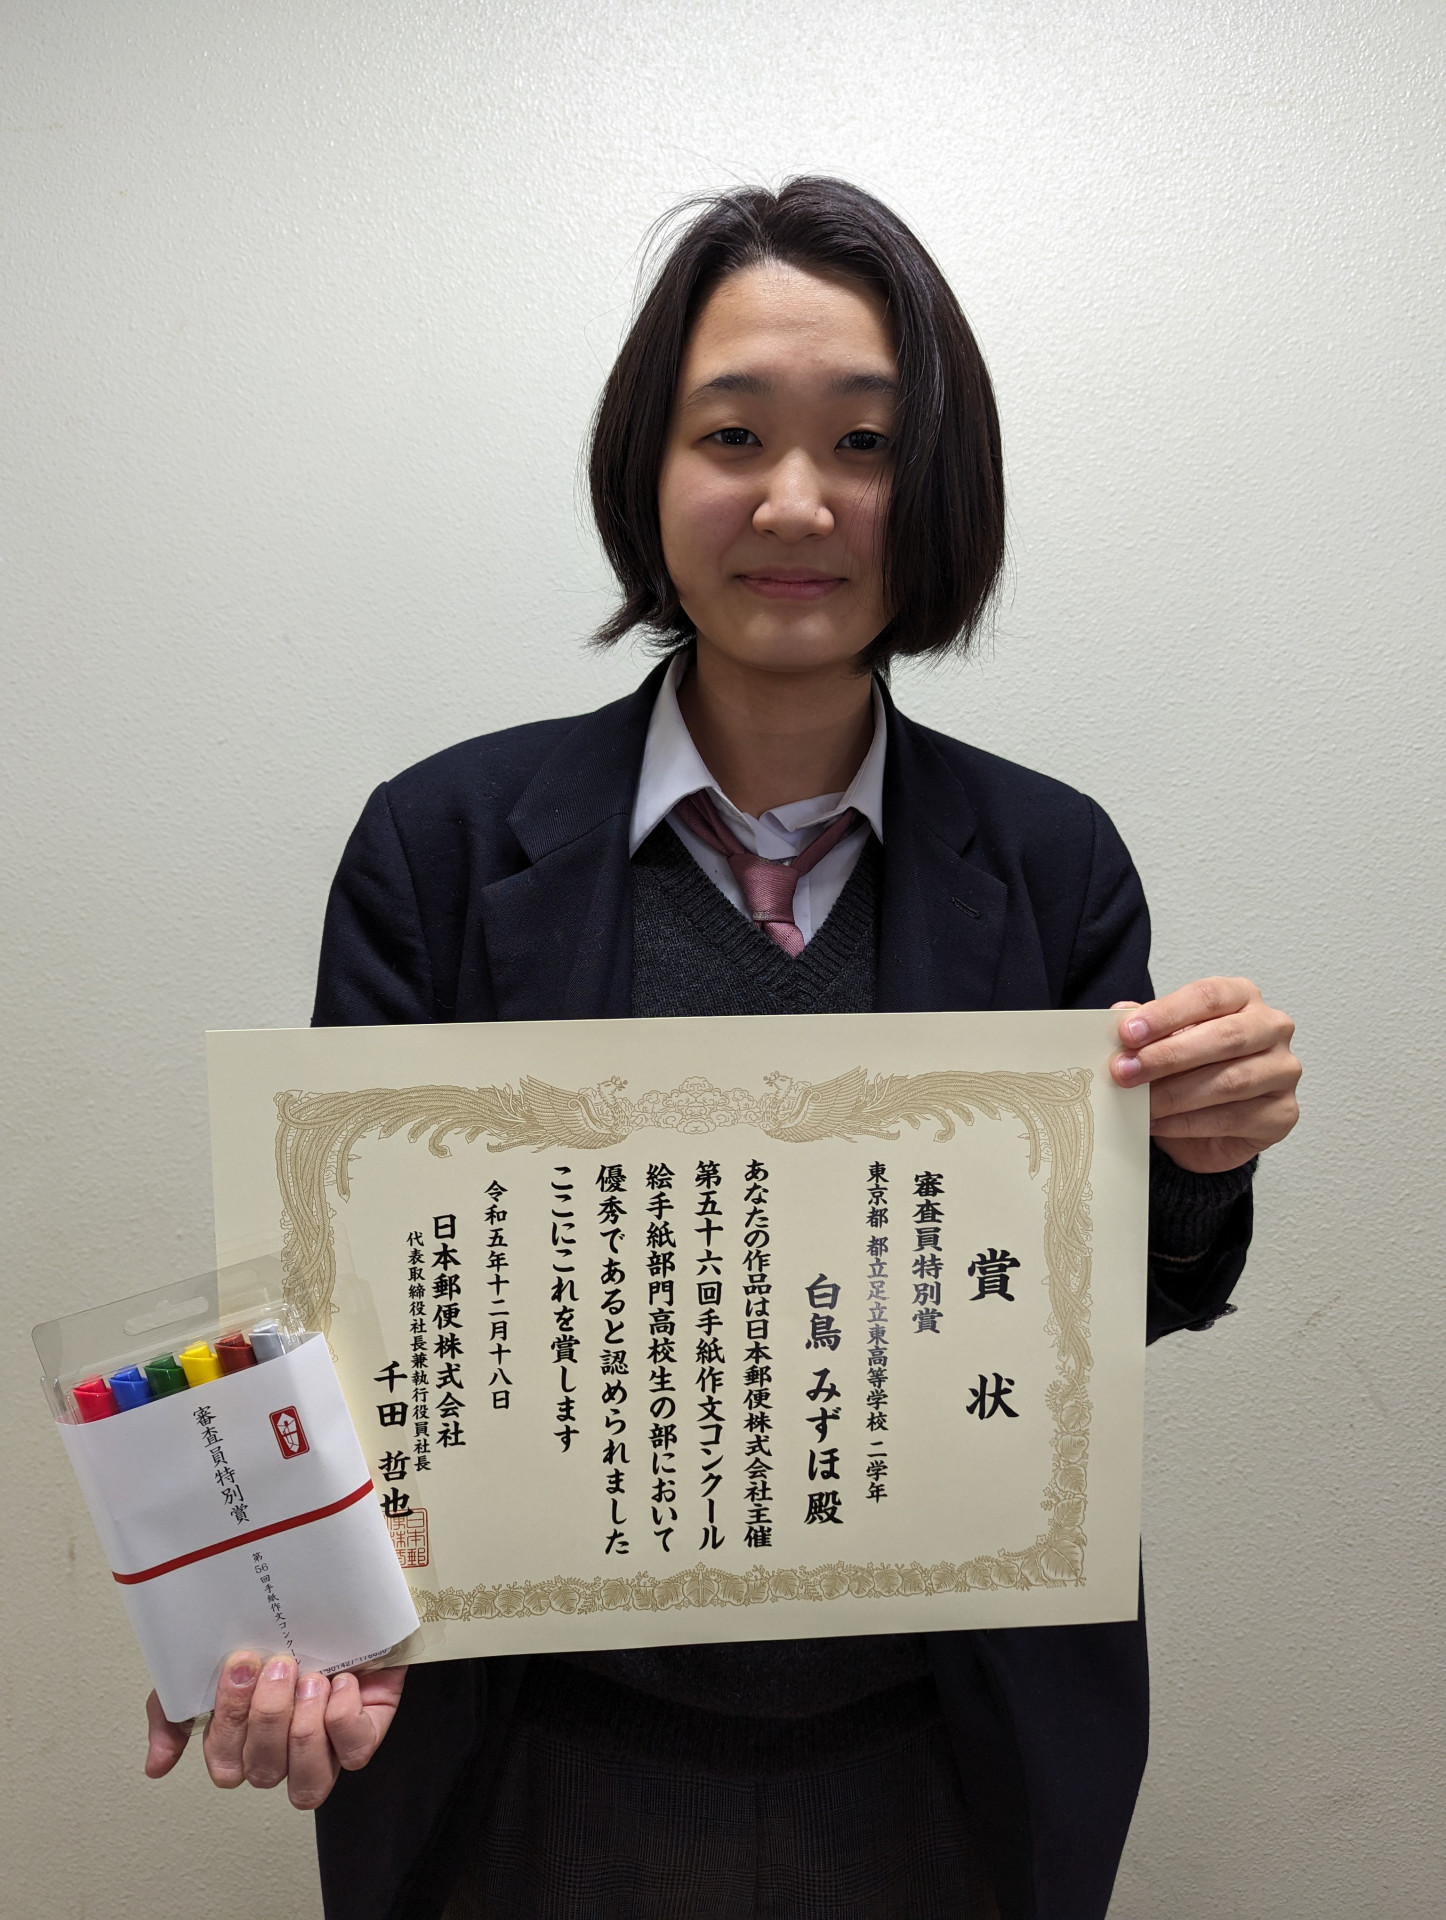 賞状
審査員特別賞
東京都 都立足立東高等学校 二学年
白鳥 みずほ殿
あなたの作品は日本郵便株式会社主催
第五十六回手紙作文コンクール
絵手紙部門高校生の部において
優秀であると認められました
ここにこれを賞します
令和五年十二月十八日
日本郵便株式会社
代表取締役社長兼執行役員社長
千田 哲也
審査員特別賞
第56回手紙作文コンクール